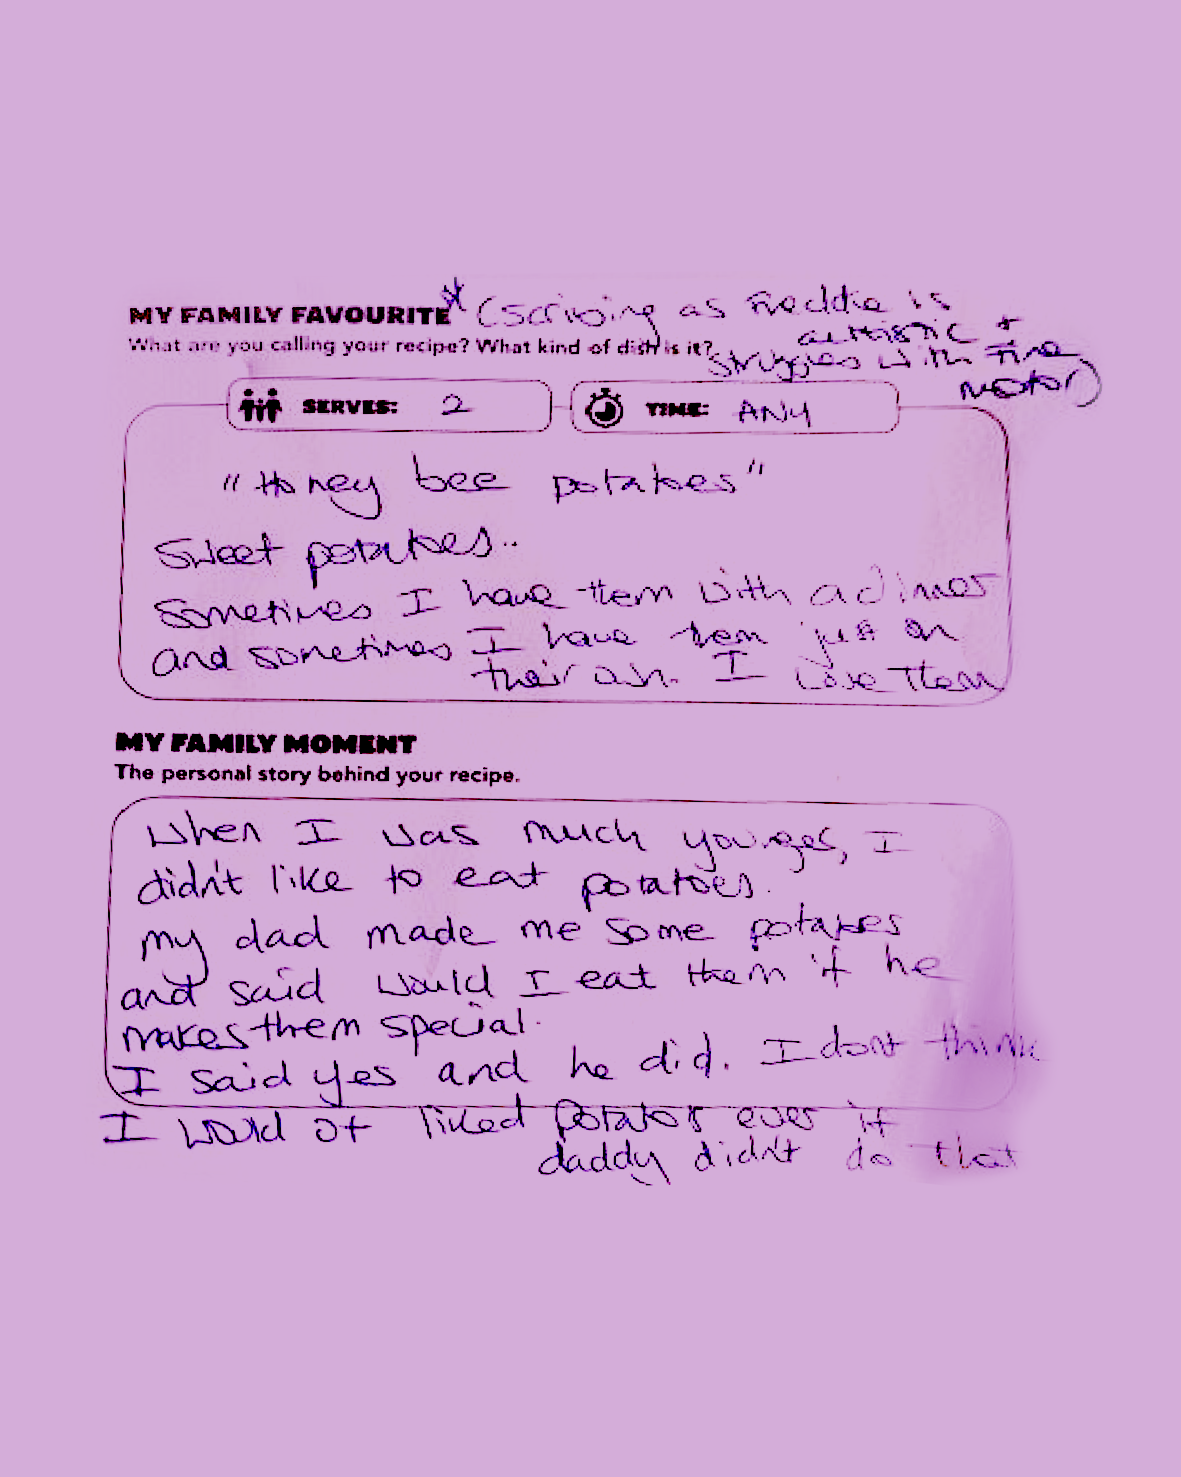 MY FAMILY FAVOURITE * (scribing as Freddie is
autistic +
What are you calling your recipe? What kind of dish is it? struggles with fine
motor)
SERVES: 2 TIME: ANY
"Honey bee potatoes"
Sweet potatoes..
Sometimes I have them with a dinner
and sometimes I have them just on
their own. I love them
MY FAMILY MOMENT
The personal story behind your recipe.
When I was much younger, I
didn't like to eat potatoes.
my dad made me some potatoes
and said would I eat them if he
makes them special.
I said yes and he did. I dont think
I would of liked potatoes ever if
daddy didn't do that